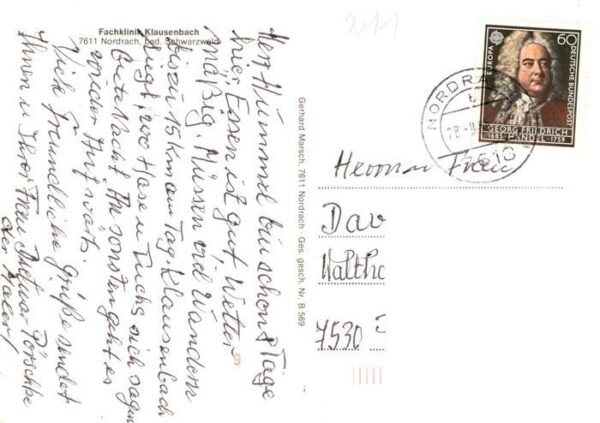 Fachklinik Klausenbach
7611 Nordrach, bad. Schwarzwald
Herr Hummel bin schon 8 Tage
hier. Essen ist gut, Wetter
mäßig. Müssen viel Wandern
bis zu 15 km am Tag. Klausenbach
liegt wo Hase u Fuchs sich sagen
Gute Nacht. Ansonsten geht es
wieder Aufwärts.
Viele Freundliche Grüße sendet
Ihnen u Ihrer Frau Dietmar
der Maler
Gerhard Marsch, 7611 Nordrach · Ges. gesch. Nr. B 569
EUROPA
60
DEUTSCHE BUNDESPOST
GEORG FRIEDRICH
1685 HÄNDEL 1759
NORDRA
Herrn u Frau
Dav
Walthe
7530